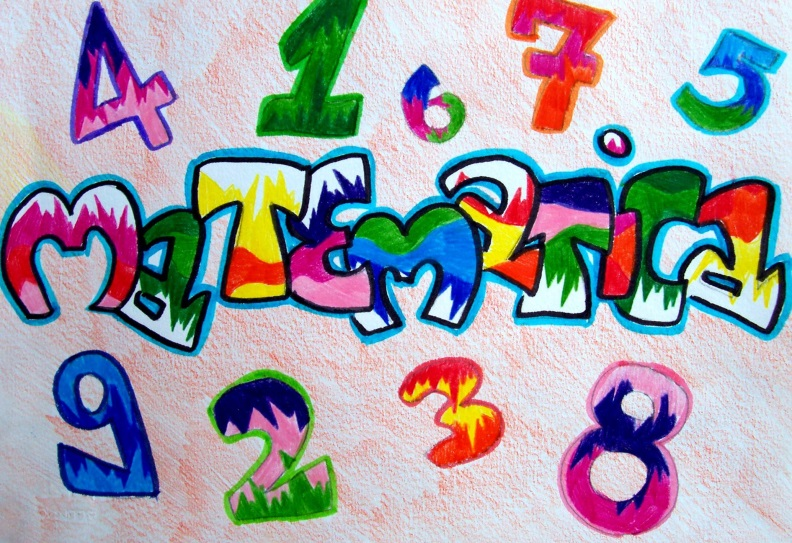 4 1 6 7 5
MaTEMaTiCa
9 2 3 8